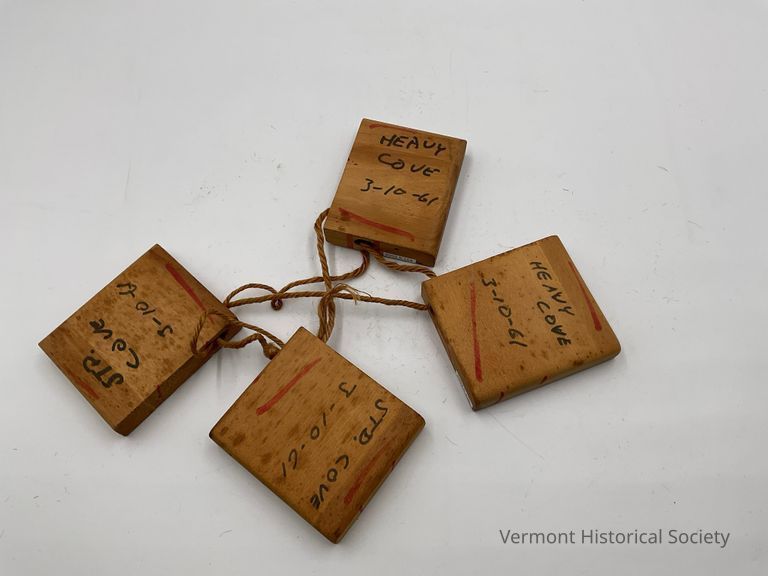 HEAVY
COVE
3-10-61
HEAVY
COVE
3-10-61
STD.
COVE
3-10-61
STD. COVE
3-10-61
Vermont Historical Society